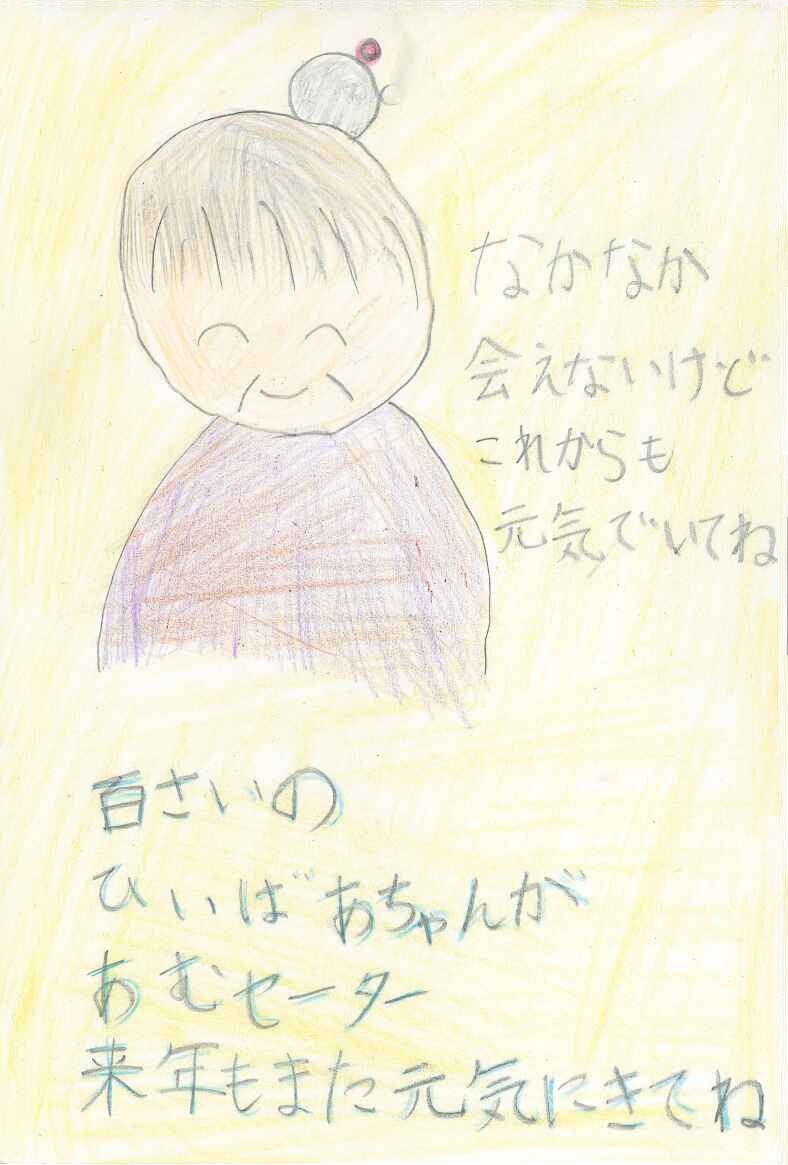 なかなか
会えないけど
これからも
元気でいてね
百さいの
ひいばあちゃんが
あむセーター
来年もまた元気にきてね